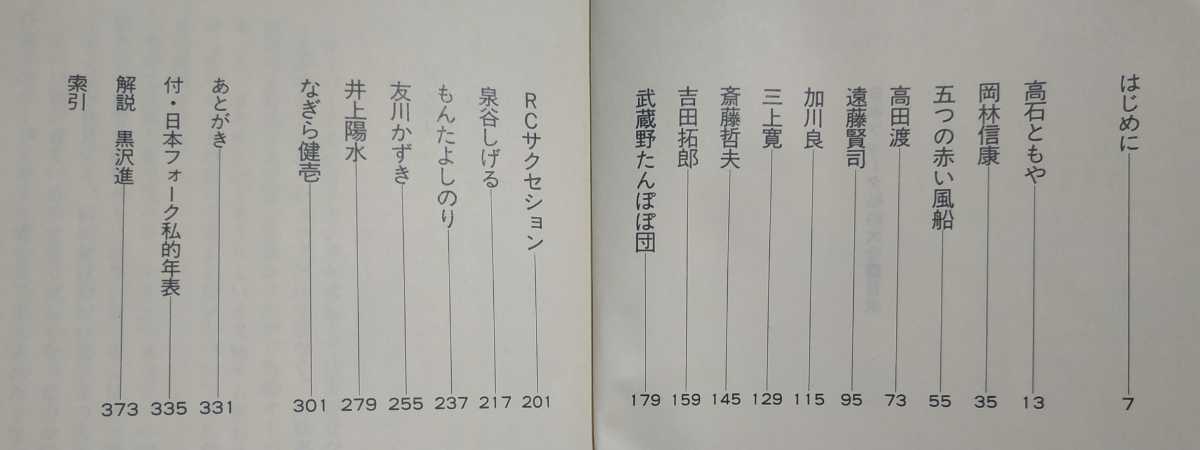 はじめに 7
高石ともや 13
岡林信康 35
五つの赤い風船 55
高田渡 73
遠藤賢司 95
加川良 115
三上寛 129
斎藤哲夫 145
吉田拓郎 159
武蔵野たんぽぽ団 179
RCサクセション 201
泉谷しげる 217
もんたよしのり 237
友川かずき 255
井上陽水 279
なぎら健壱 301
あとがき 331
付・日本フォーク私的年表 335
解説 黒沢進 373
索引